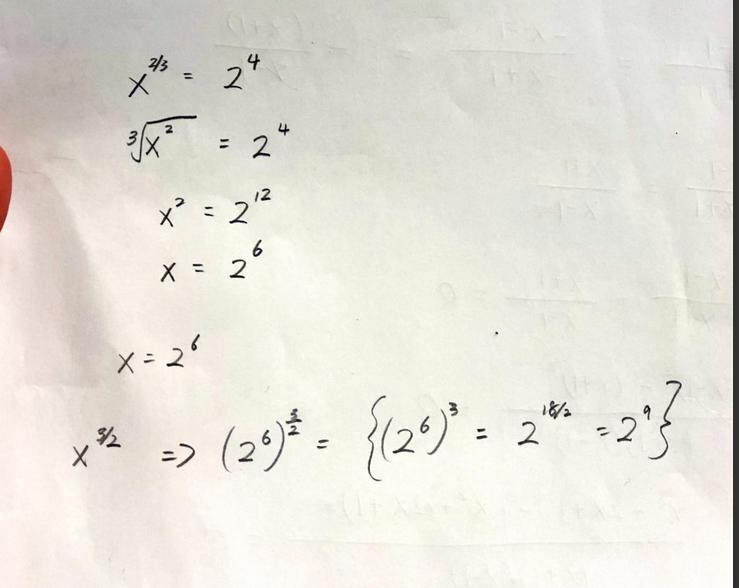 x^{2/3} = 2^4
∛x^2 = 2^4
x^2 = 2^{12}
x = 2^6
x = 2^6
x^{3/2} => (2^6)^{3/2} = {(2^6)^3 = 2^{18/2} = 2^9}